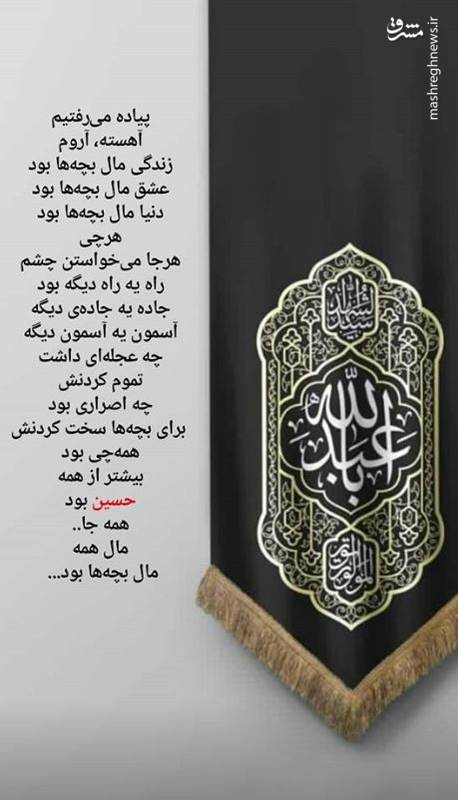 مشرق
mashreghnews.ir
پیاده می‌رفتیم
آهسته، آروم
زندگی مال بچه‌ها بود
عشق مال بچه‌ها بود
دنیا مال بچه‌ها بود
هرچی
هرجا می‌خواستن چشم
راه یه راه دیگه بود
جاده یه جاده‌ی دیگه
آسمون یه آسمون دیگه
چه عجله‌ای داشت
تموم کردنش
چه اصراری بود
برای بچه‌ها سخت کردنش
همه‌چی بود
بیشتر از همه
حسین بود
همه جا..
مال همه
مال بچه‌ها بود...
یا اباعبدالله